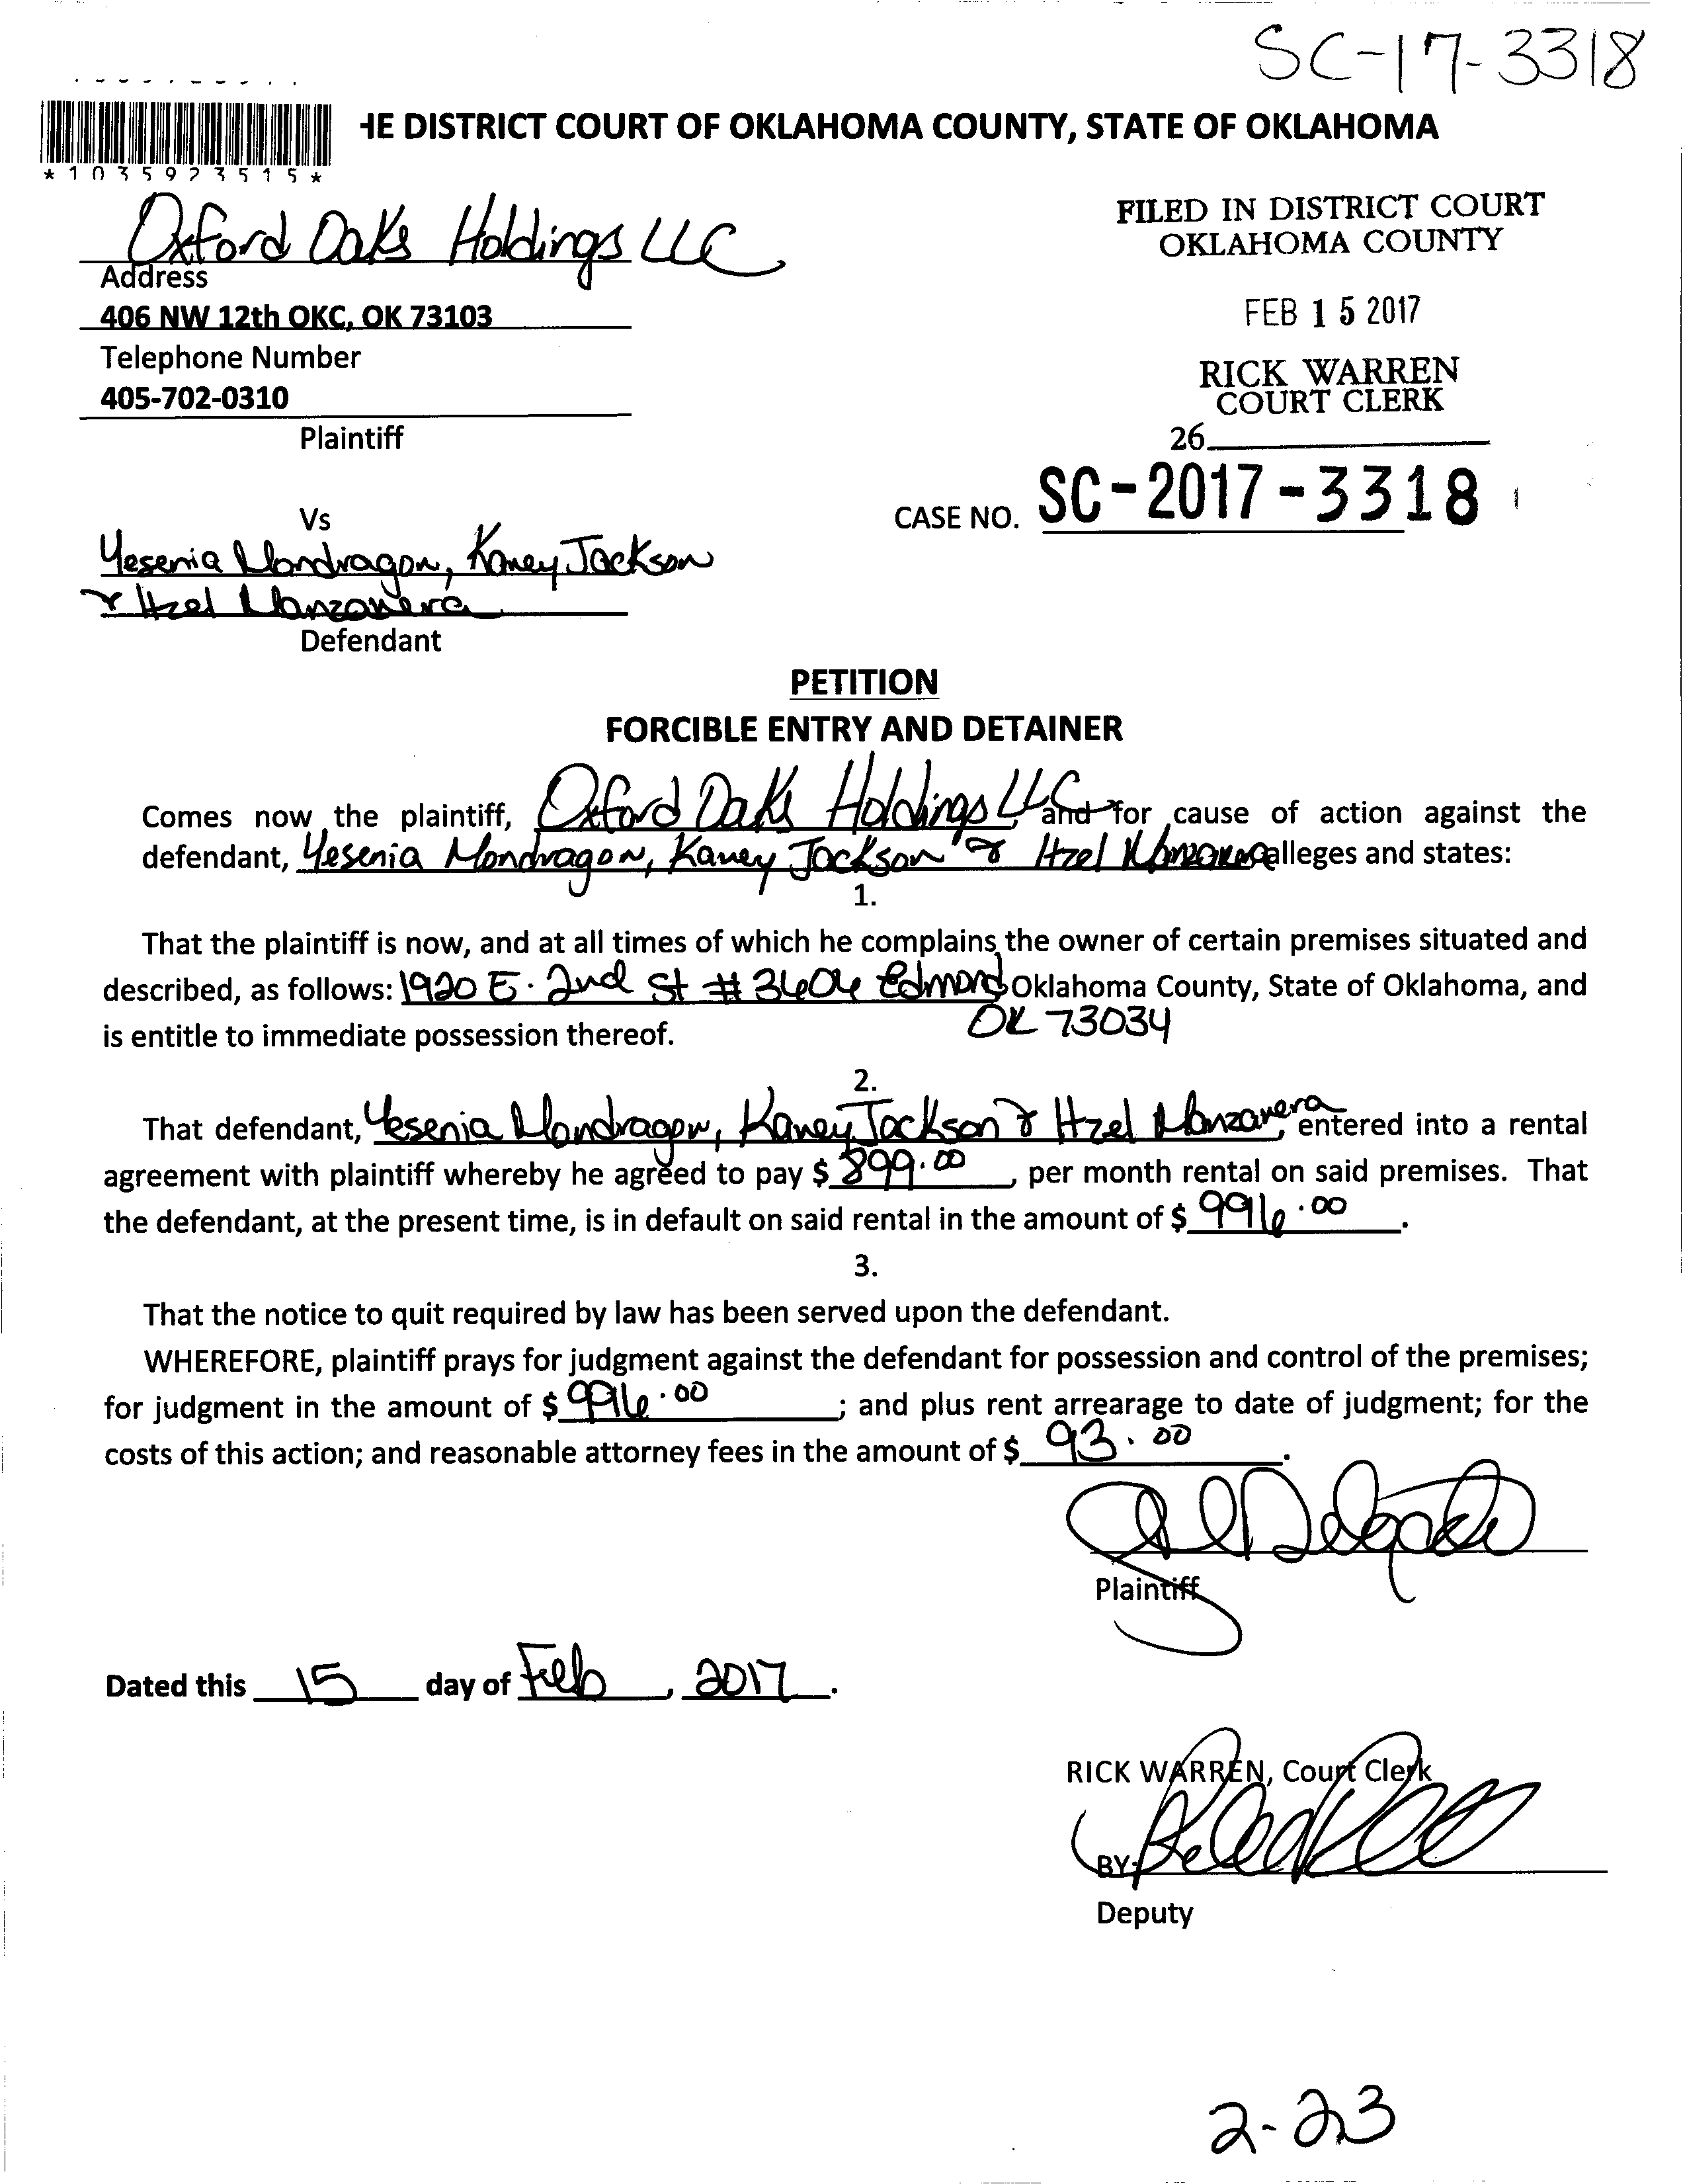 SC-17-3318
HE DISTRICT COURT OF OKLAHOMA COUNTY, STATE OF OKLAHOMA
*1035923515*
Oxford Oaks Holdings LLC
Address
406 NW 12th OKC, OK 73103
Telephone Number
405-702-0310
Plaintiff
FILED IN DISTRICT COURT
OKLAHOMA COUNTY
FEB 15 2017
RICK WARREN
COURT CLERK
26
CASE NO. SC-2017-3318
Vs
Yesenia Mondragon, Kaney Jackson
& Itzel Manzanera
Defendant
PETITION
FORCIBLE ENTRY AND DETAINER
Comes now the plaintiff, Oxford Oaks Holdings LLC, and for cause of action against the
defendant, Yesenia Mondragon, Kaney Jackson & Itzel Manzanera alleges and states:
1.
That the plaintiff is now, and at all times of which he complains the owner of certain premises situated and
described, as follows: 1920 E. 2nd St # 3606 Edmond Oklahoma County, State of Oklahoma, and
OK 73034
is entitle to immediate possession thereof.
2.
That defendant, Yesenia Mondragon, Kaney Jackson & Itzel Manzanera, entered into a rental
agreement with plaintiff whereby he agreed to pay $ 899.00, per month rental on said premises. That
the defendant, at the present time, is in default on said rental in the amount of $ 996.00.
3.
That the notice to quit required by law has been served upon the defendant.
WHEREFORE, plaintiff prays for judgment against the defendant for possession and control of the premises;
for judgment in the amount of $ 996.00; and plus rent arrearage to date of judgment; for the
costs of this action; and reasonable attorney fees in the amount of $ 93.00.
Plaintiff
Dated this 15 day of Feb, 2017.
RICK WARREN, Court Clerk
BY:
Deputy
2-23